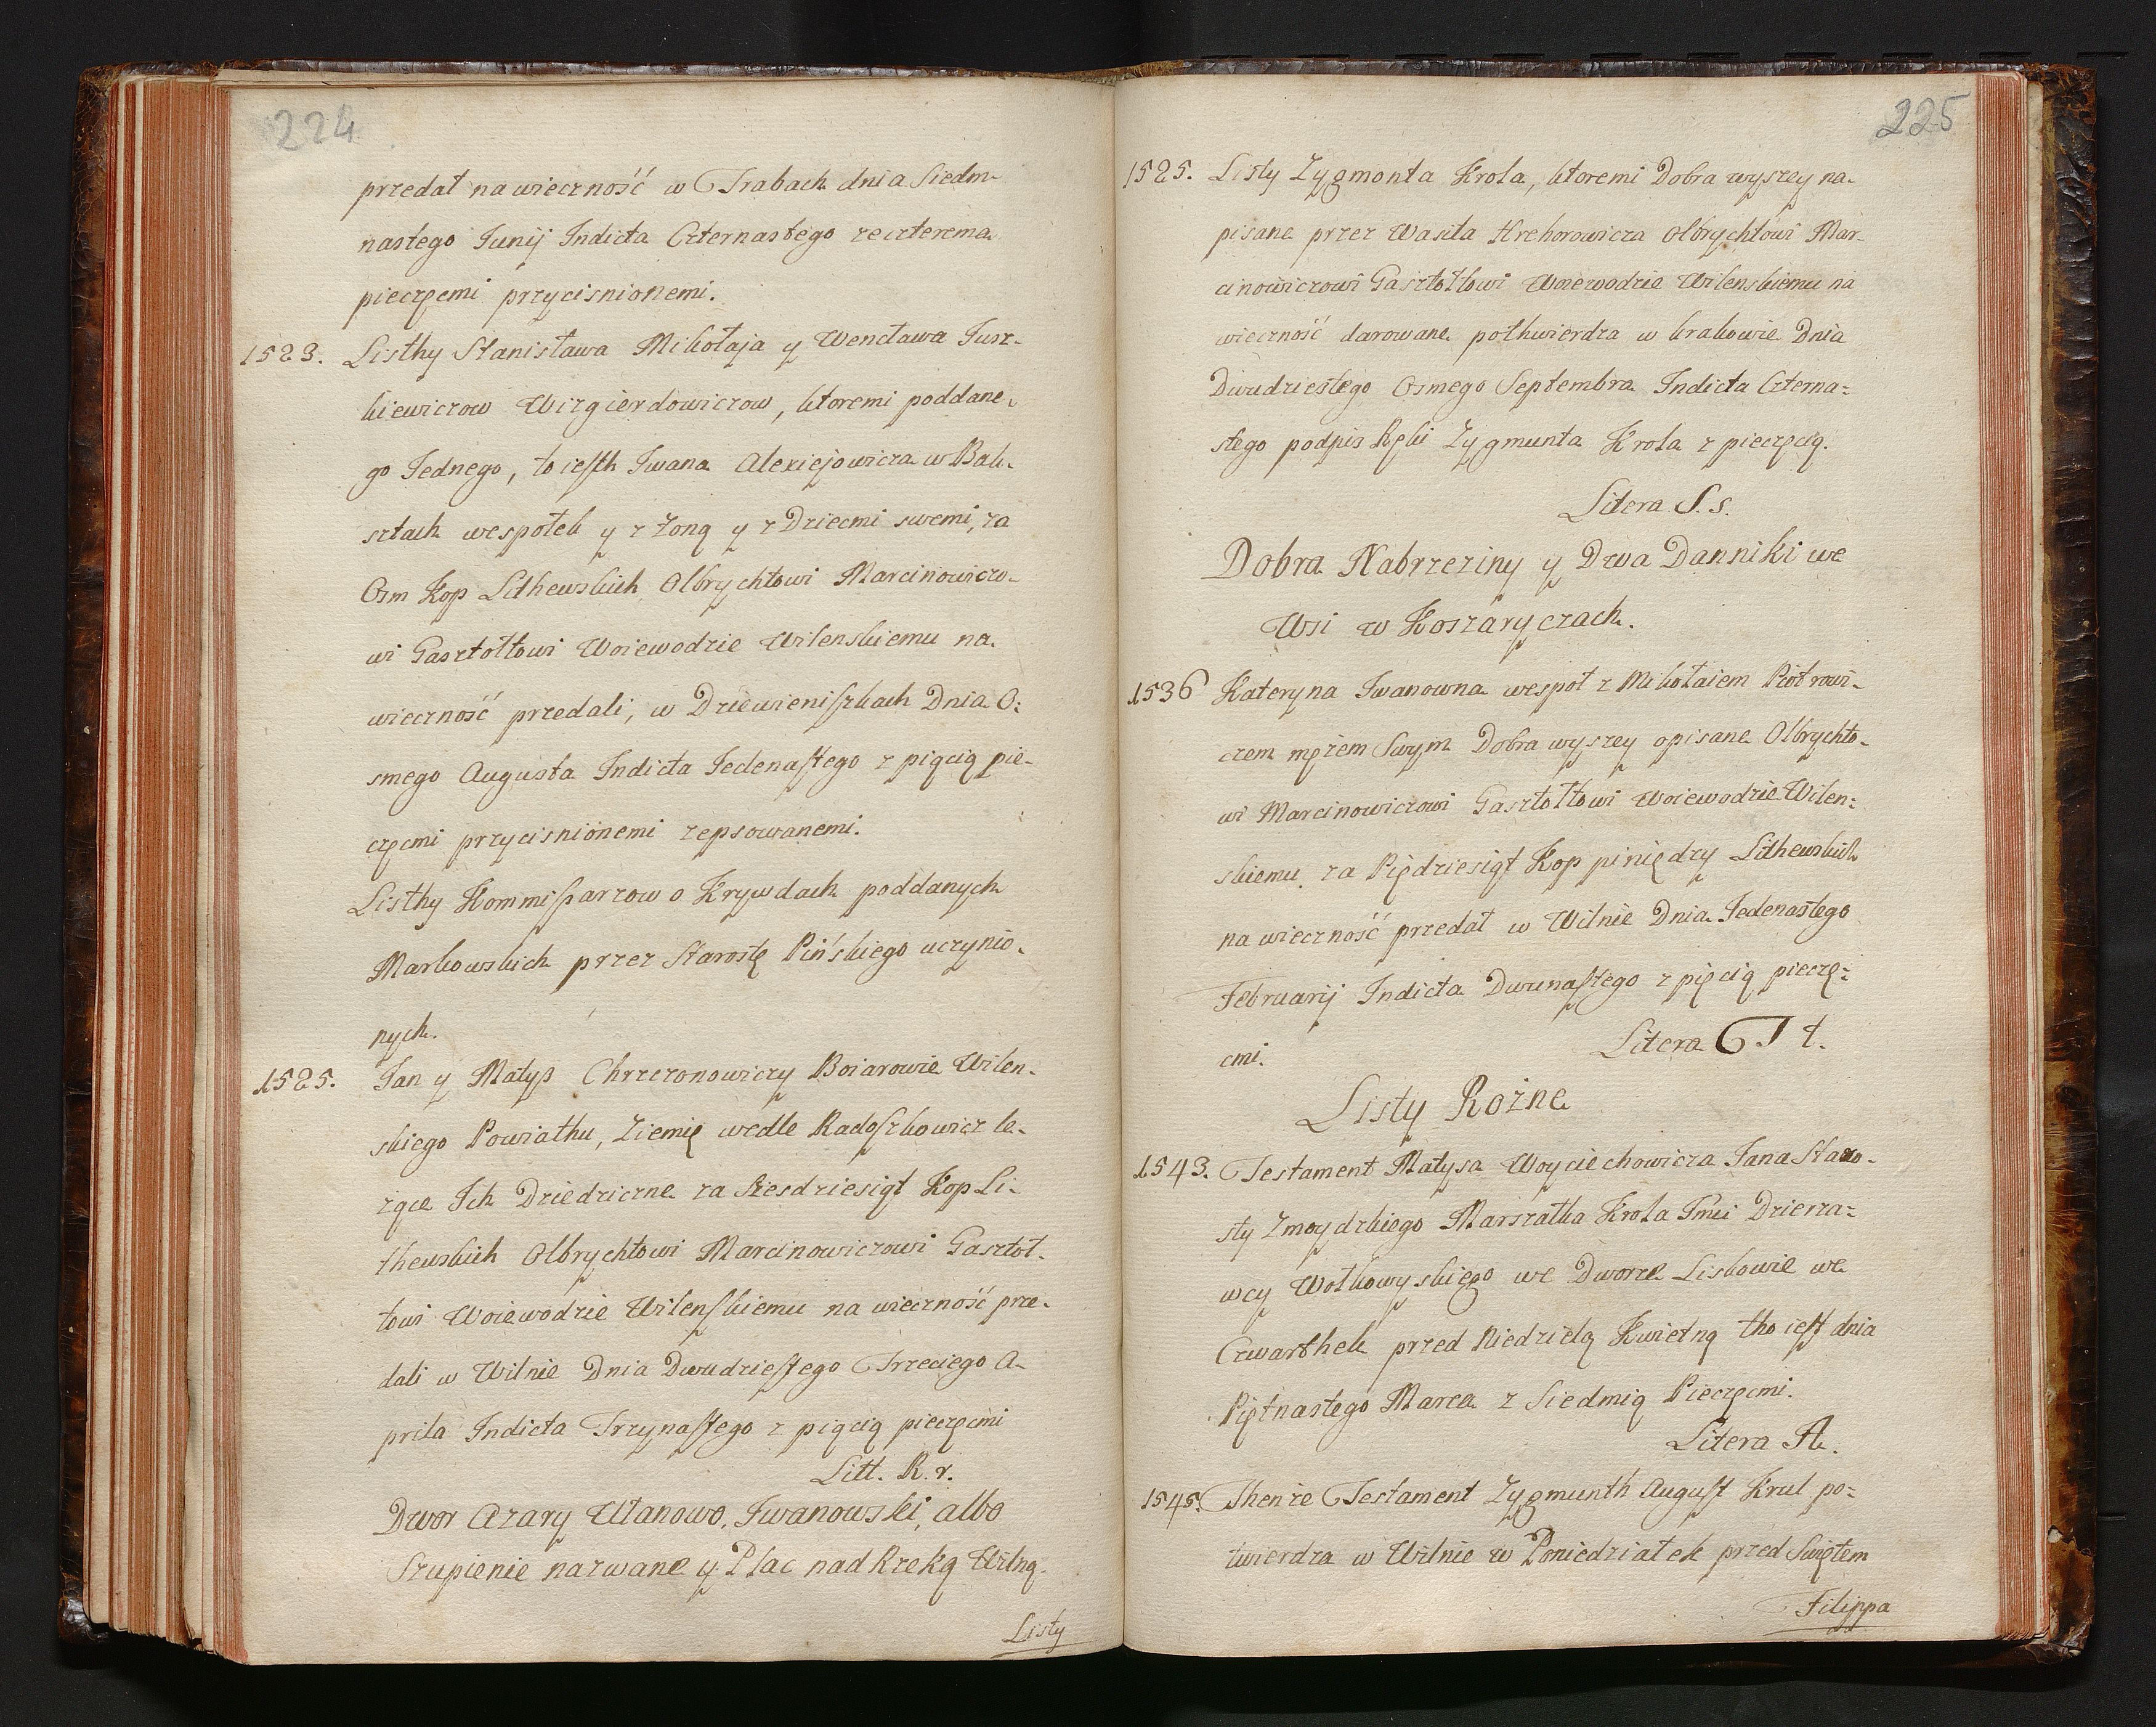 224
przedał na wieczność w Trabach dnia Siedm-
nastego Junij Indicta Czternastego ze czterema
pieczęcmi przycisnionemi.
1523. Listhy Stanisława Mikołaja y Wencława Jusz-
kiewiczow Wizgierdowiczow, ktoremi poddane-
go Jednego, to iesth Iwana Alexiejowicza w Bak-
sztach wespołek y z Zoną y z Dziecmi swemi, za
Osm Kop Lithewskich Olbrychtowi Marcinowiczo-
wi Gasztołtowi Woiewodzie Wilenskiemu na
wieczność przedali, w Dziewieniszkach Dnia O:
smego Augusta Indicta Jedenastego z piącią pie-
częcmi przycisnionemi zepsowanemi.
Listhy Kommissarzow o Krzywdach poddanych
Markowskich przez Starostę Pińskiego uczynio-
nych.
1525. Jan y Matyß Chrzczonowiczy Boiarowie Wilen-
skiego Powiathu, Ziemię wedle Radoszkowicz le-
żące Ich Dziedziczne za Szesdziesiąt Kop Li-
thewskich Olbrychtowi Marcinowiczowi Gasztoł-
towi Woiewodzie Wilenskiemu na wieczność prze-
dali w Wilnie Dnia Dwudziestego Trzeciego A-
prila Indicta Trzynastego z piącią pieczęcmi
Litt. R. r.
Dwor Azary Ułanowo, Iwanowski, albo
Szupienie nazwane y Plac nad Rzeką Wilną.
Listy
225
1525. Listy Zygmonta Krola, ktoremi Dobra wyszey na-
pisane przez Wasila Hrehorowicza Olbrychtowi Mar-
cinowiczowi Gasztołtowi Woiewodzie Wilenskiemu na
wieczność darowane pothwierdza w krakowie Dnia
Dwudziestego Osmego Septembra Indicta Czterna=
stego podpis Ręki Zygmunta Krola z pieczęcią.
Litera S. s.
Dobra Nabrzeziny y Dwa Danniki we
Wsi w Koszaryczach.
1536 Kateryna Iwanowna wespoł z Mikołaiem Piotrowi-
czem mężem Swym Dobra wyszey opisane Olbrychto-
wi Marcinowiczowi Gasztołtowi Woiewodzie Wilen:
skiemu za Piędziesiąt Kop piniędzy Lithewskich
na wieczność przedał w Wilnie Dnia Jedenastego
Februarij Indicta Dwunastego z pięcią pieczę:
cmi. Litera T t.
Listy Rożne
1543. Testament Matysa Woyciechowicza Jana Staro-
sty Zmoydzkiego Marszałka Krola Jmci Dzierża=
wcy Wołkowyskiego we Dworze Liskowie we
Czwarthek przed Niedzielą Kwietną tho iest dnia
Piętnastego Marca z Siedmią Pieczęcmi.
Litera A.
1545. Thenże Testament Zygmunth August Krul po=
twierdza w Wilnie w Poniedziałek przed Swiętem
Filippa